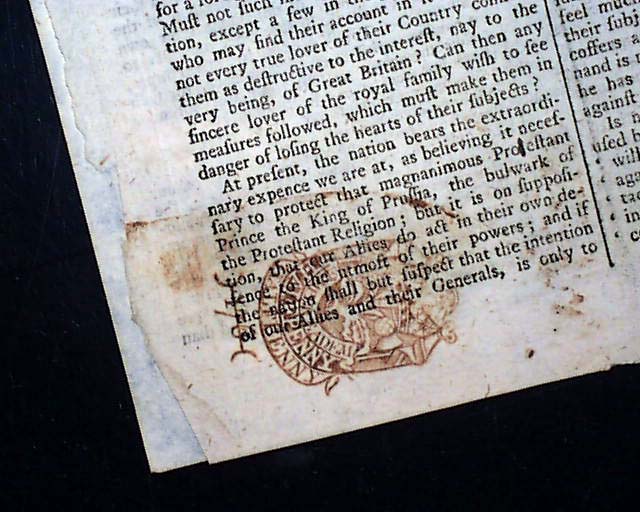 for a
Muſt not ſuch
tion, except a few in the
who may find their account in
not every true lover of their Country
them as deſtructive to the intereſt, nay to the
very being, of Great Britain? Can then any
ſincere lover of the royal family wiſh to ſee
meaſures followed, which muſt make them in
danger of loſing the hearts of their ſubjects?
At preſent, the nation bears the extraordi-
nary expence we are at, as believing it neceſ-
ſary to protect that magnanimous Proteſtant
Prince the King of Pruſſia, the bulwark of
the Proteſtant Religion; but it is on ſuppoſi-
tion, that our Allies do act in their own de-
fence to the utmoſt of their powers; and if
the nation ſhall but ſuſpect that the intention
of our Allies and their Generals, is only to
feel
their
coffers
nand is
he has
againſt
Is
uſed
will